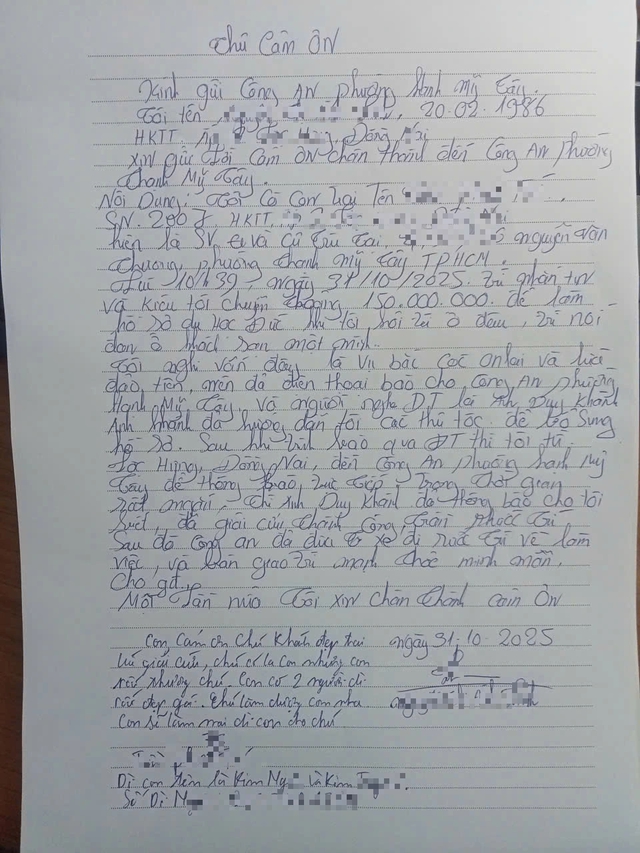 Thư Cảm ƠN
Kính gửi Công AN phường hạnh mỹ Tây.
Tôi tên , 20.02.1986
HKTT. Đồng Nai
xin gửi lời Cảm ƠN chân thành đến Công AN phường
Thạnh Mỹ Tây.
Nội Dung: Tôi Có Con trai Tên
SN. 2007, HKTT,
hiện là SV và Cư trú Tại, nguyễn văn
Thương, phường thạnh mỹ tây TPHCM.
Lúc 10h39 - ngày 31/10/2025. Trí nhắn tin
và kiêu tôi chuyển khoảng 150.000.000. để làm
hồ sơ du học Đức khi tôi hỏi Trí ở đâu, Trí nói
đan ở khách sạn một mình.
Tôi nghi vấn đây là vụ bắc cóc onlai và lừa
đảo tiền, nên đã điện thoại báo cho Công AN phường
thạnh Mỹ Tây và người nghe DT là Anh Duy Khánh
Anh khánh đã hướng dẫn tôi các thủ tóc để bổ sung
hồ sơ. Sau khi trình báo qua ĐT thì tôi từ
Lộc Hưng, Đồng Nai, đến Công AN phường hạnh mỹ
Tây để thông báo trực tiếp. Trong thời gian
rất ngắn, thì Anh Duy Khánh đã thông báo cho tôi
biết, đã giải cứu thành Công Trí
Sau đó Công an đã đưa xe đi rước Trí về làm
việc, và bàn giao Trí mạnh khỏe minh mẫn.
Cho gđ.
Một lần nữa Tôi xin chân thành cảm ƠN
Con cám ơn Chú Khánh đẹp trai ngày 31.10.2025
đã giải cứu, chú có la con nhưng con
rất thương chú. Con có 2 người dì
rất đẹp gái. Chú làm dượng con nha
Con sẽ làm mai dì con cho chú
Dì con tên là Kim và Kim
Số Dì